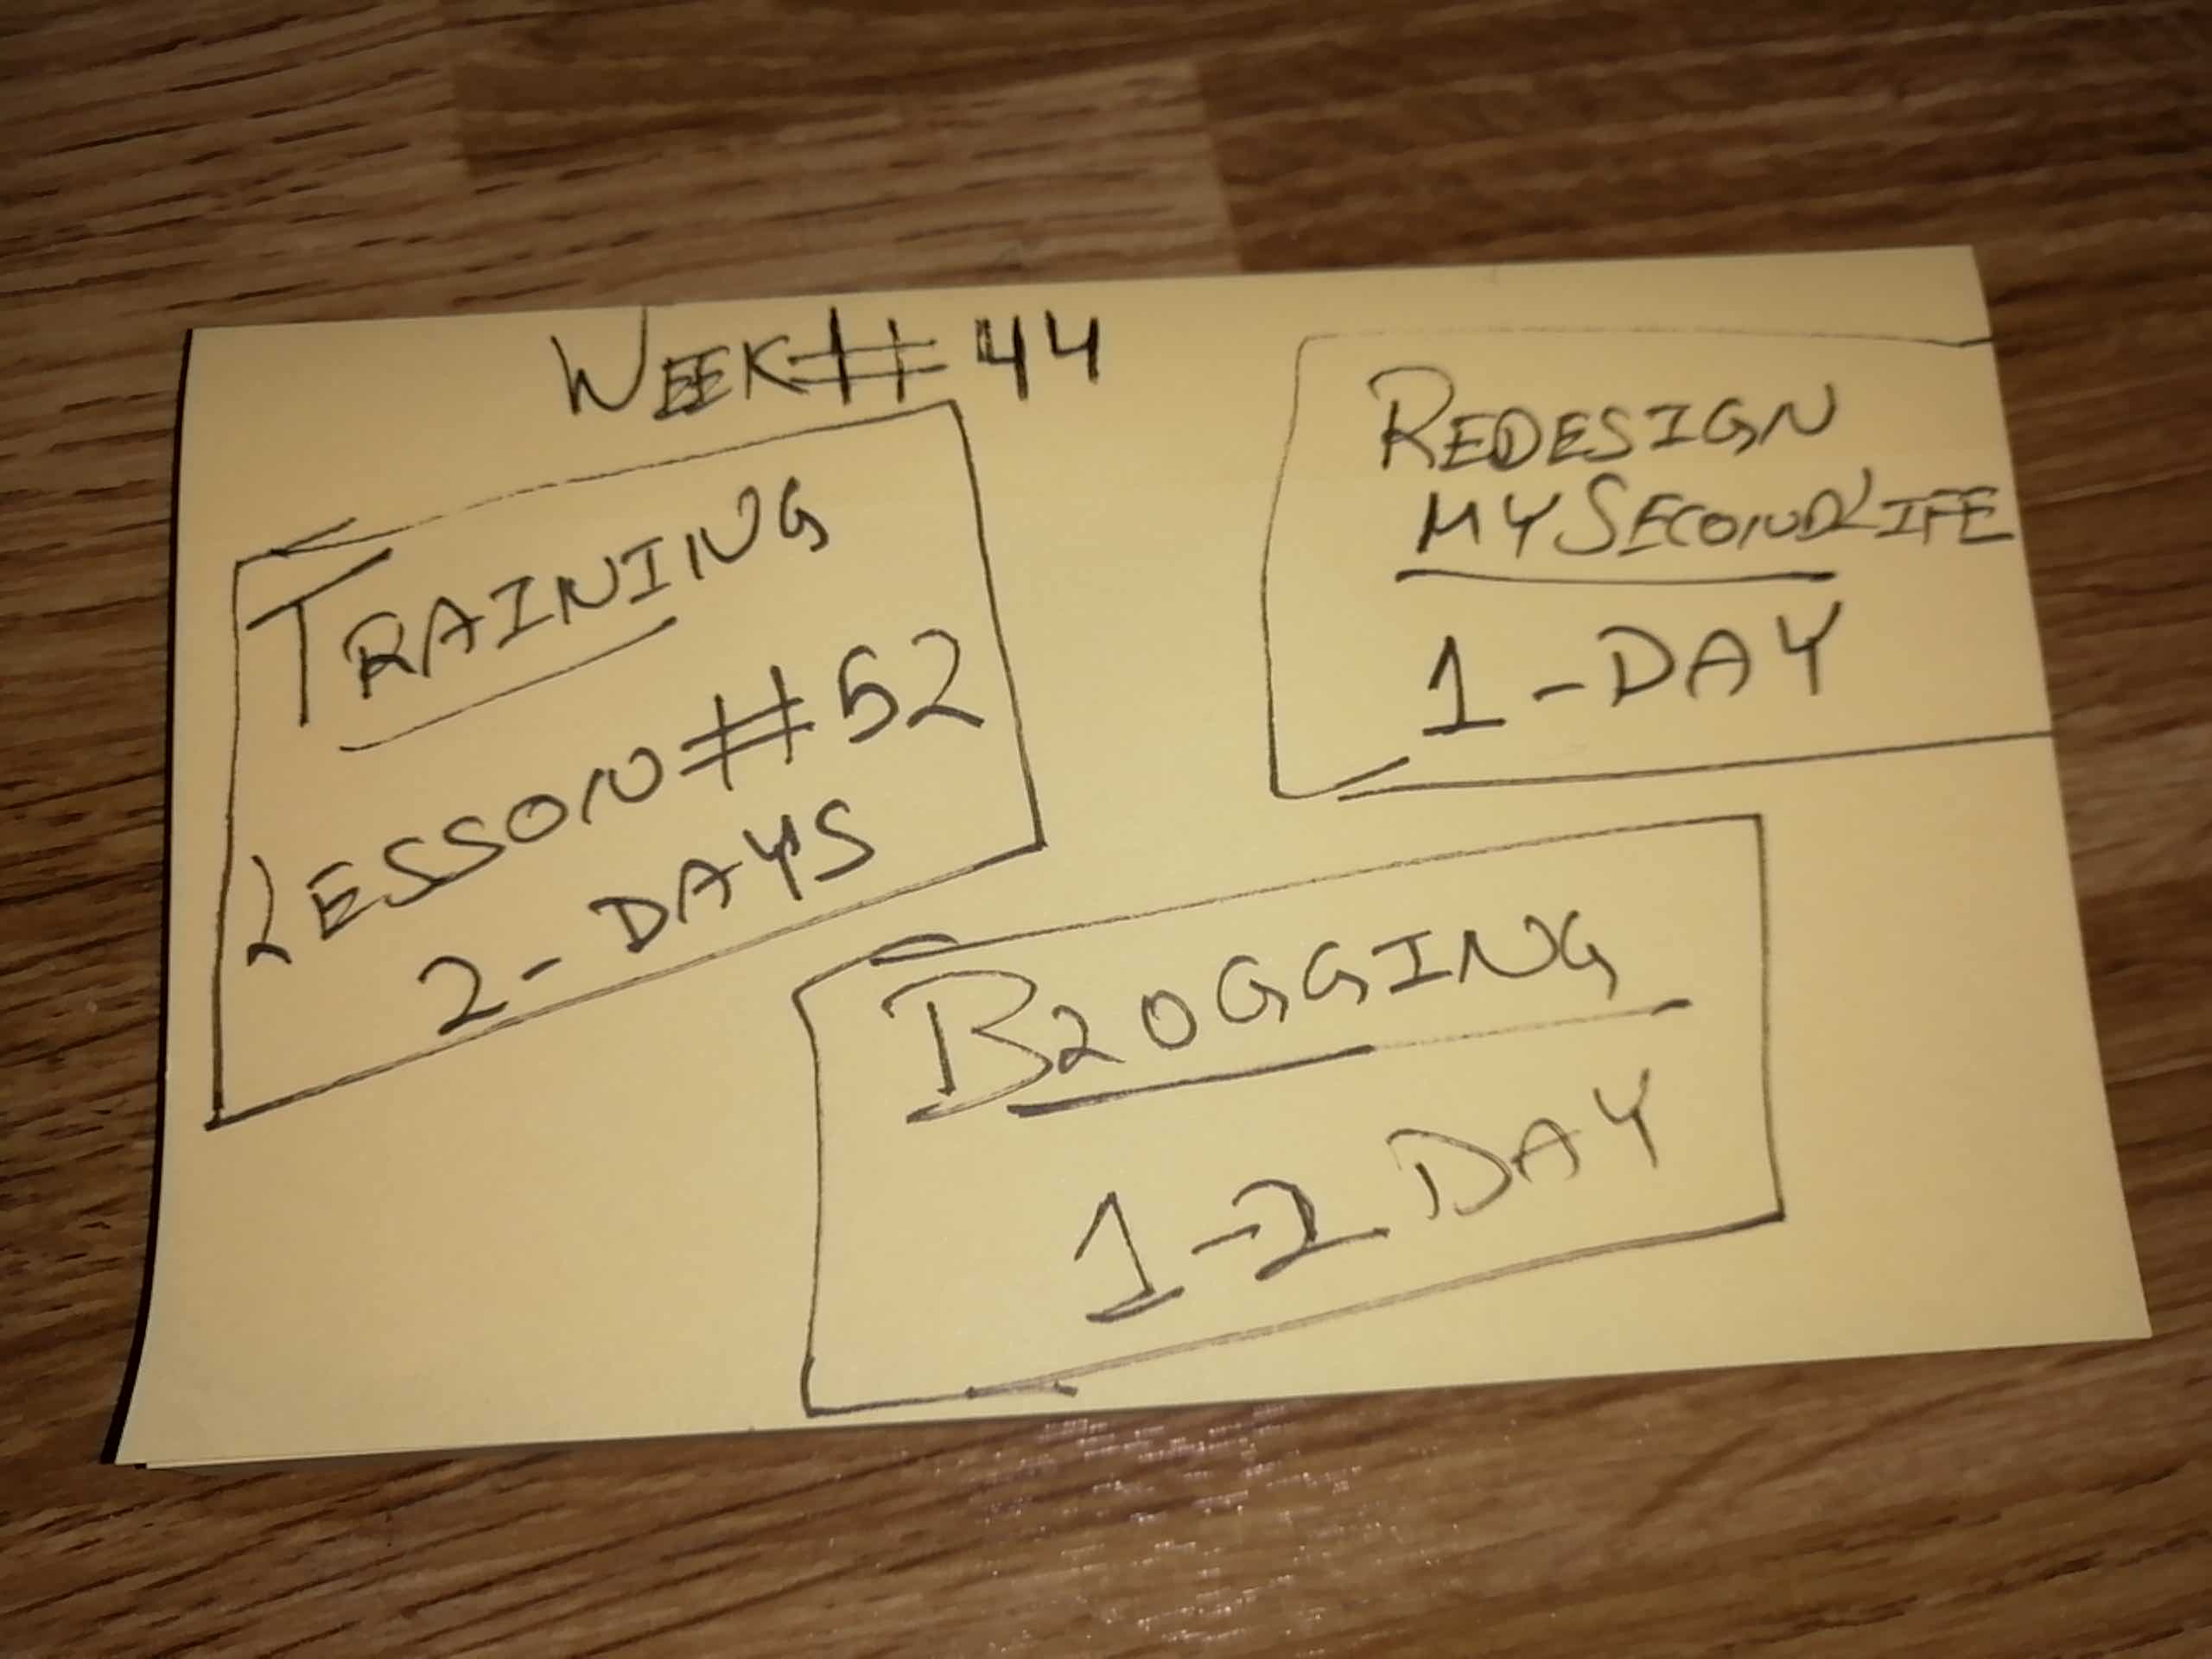 WEEK# 44
TRAINING
LESSON #52
2-DAYS
REDESIGN
MYSECONDLIFE
1-DAY
BLOGGING
1-2 DAY